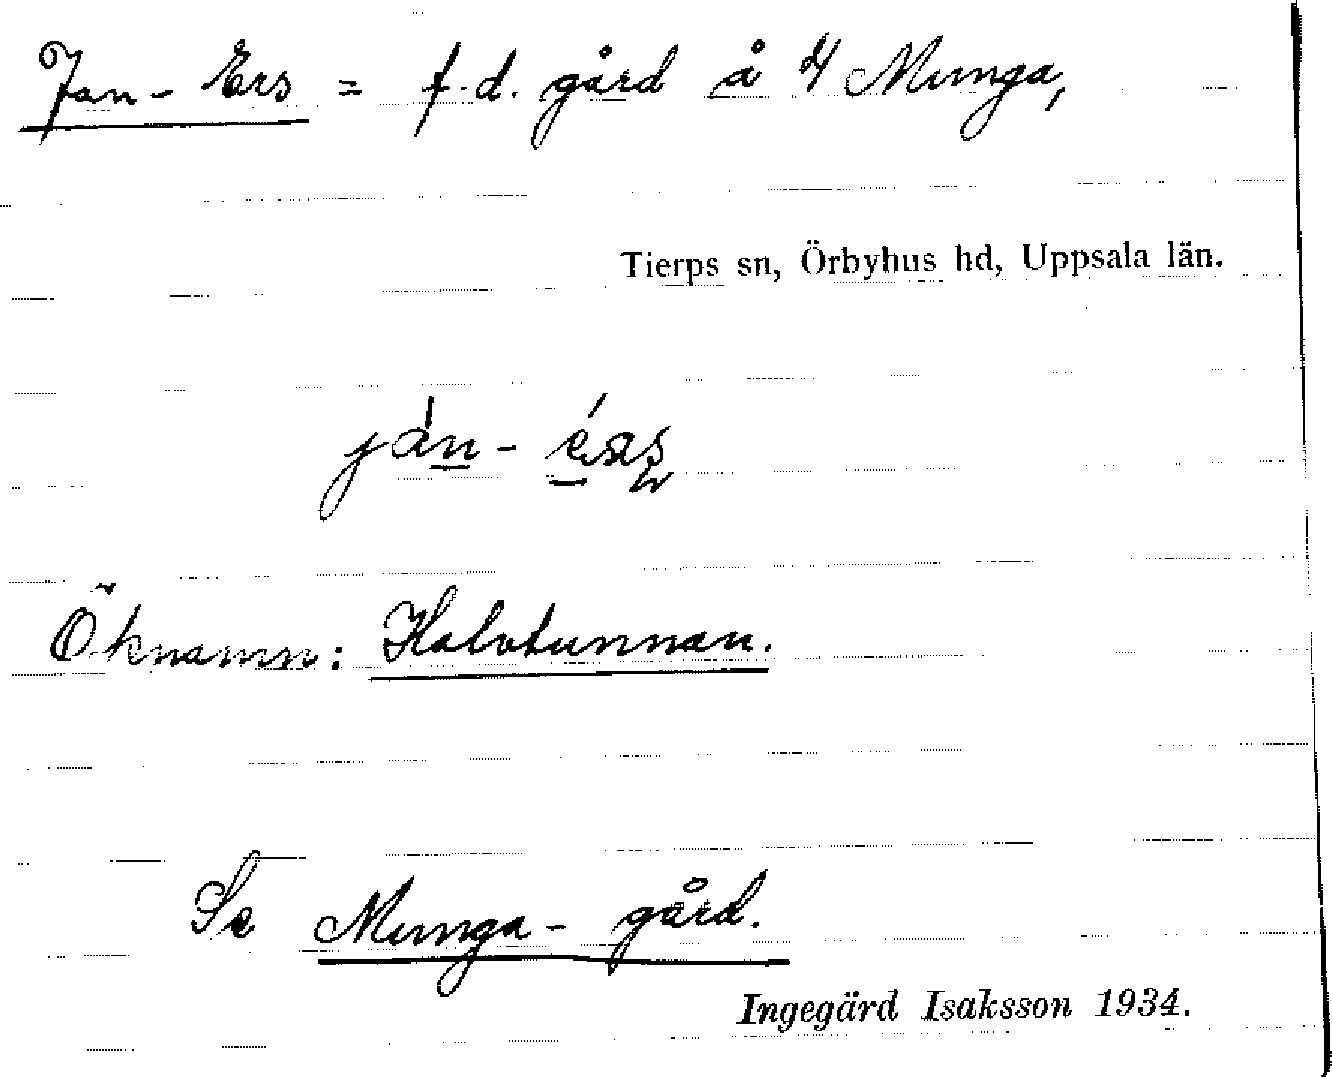 Jan-Ers = f.d. gård å 4 Munga,
Tierps sn, Örbyhus hd, Uppsala län.
Öknamn: Kalvtunnan.
Se Munga-gård.
Ingegärd Isaksson 1934.